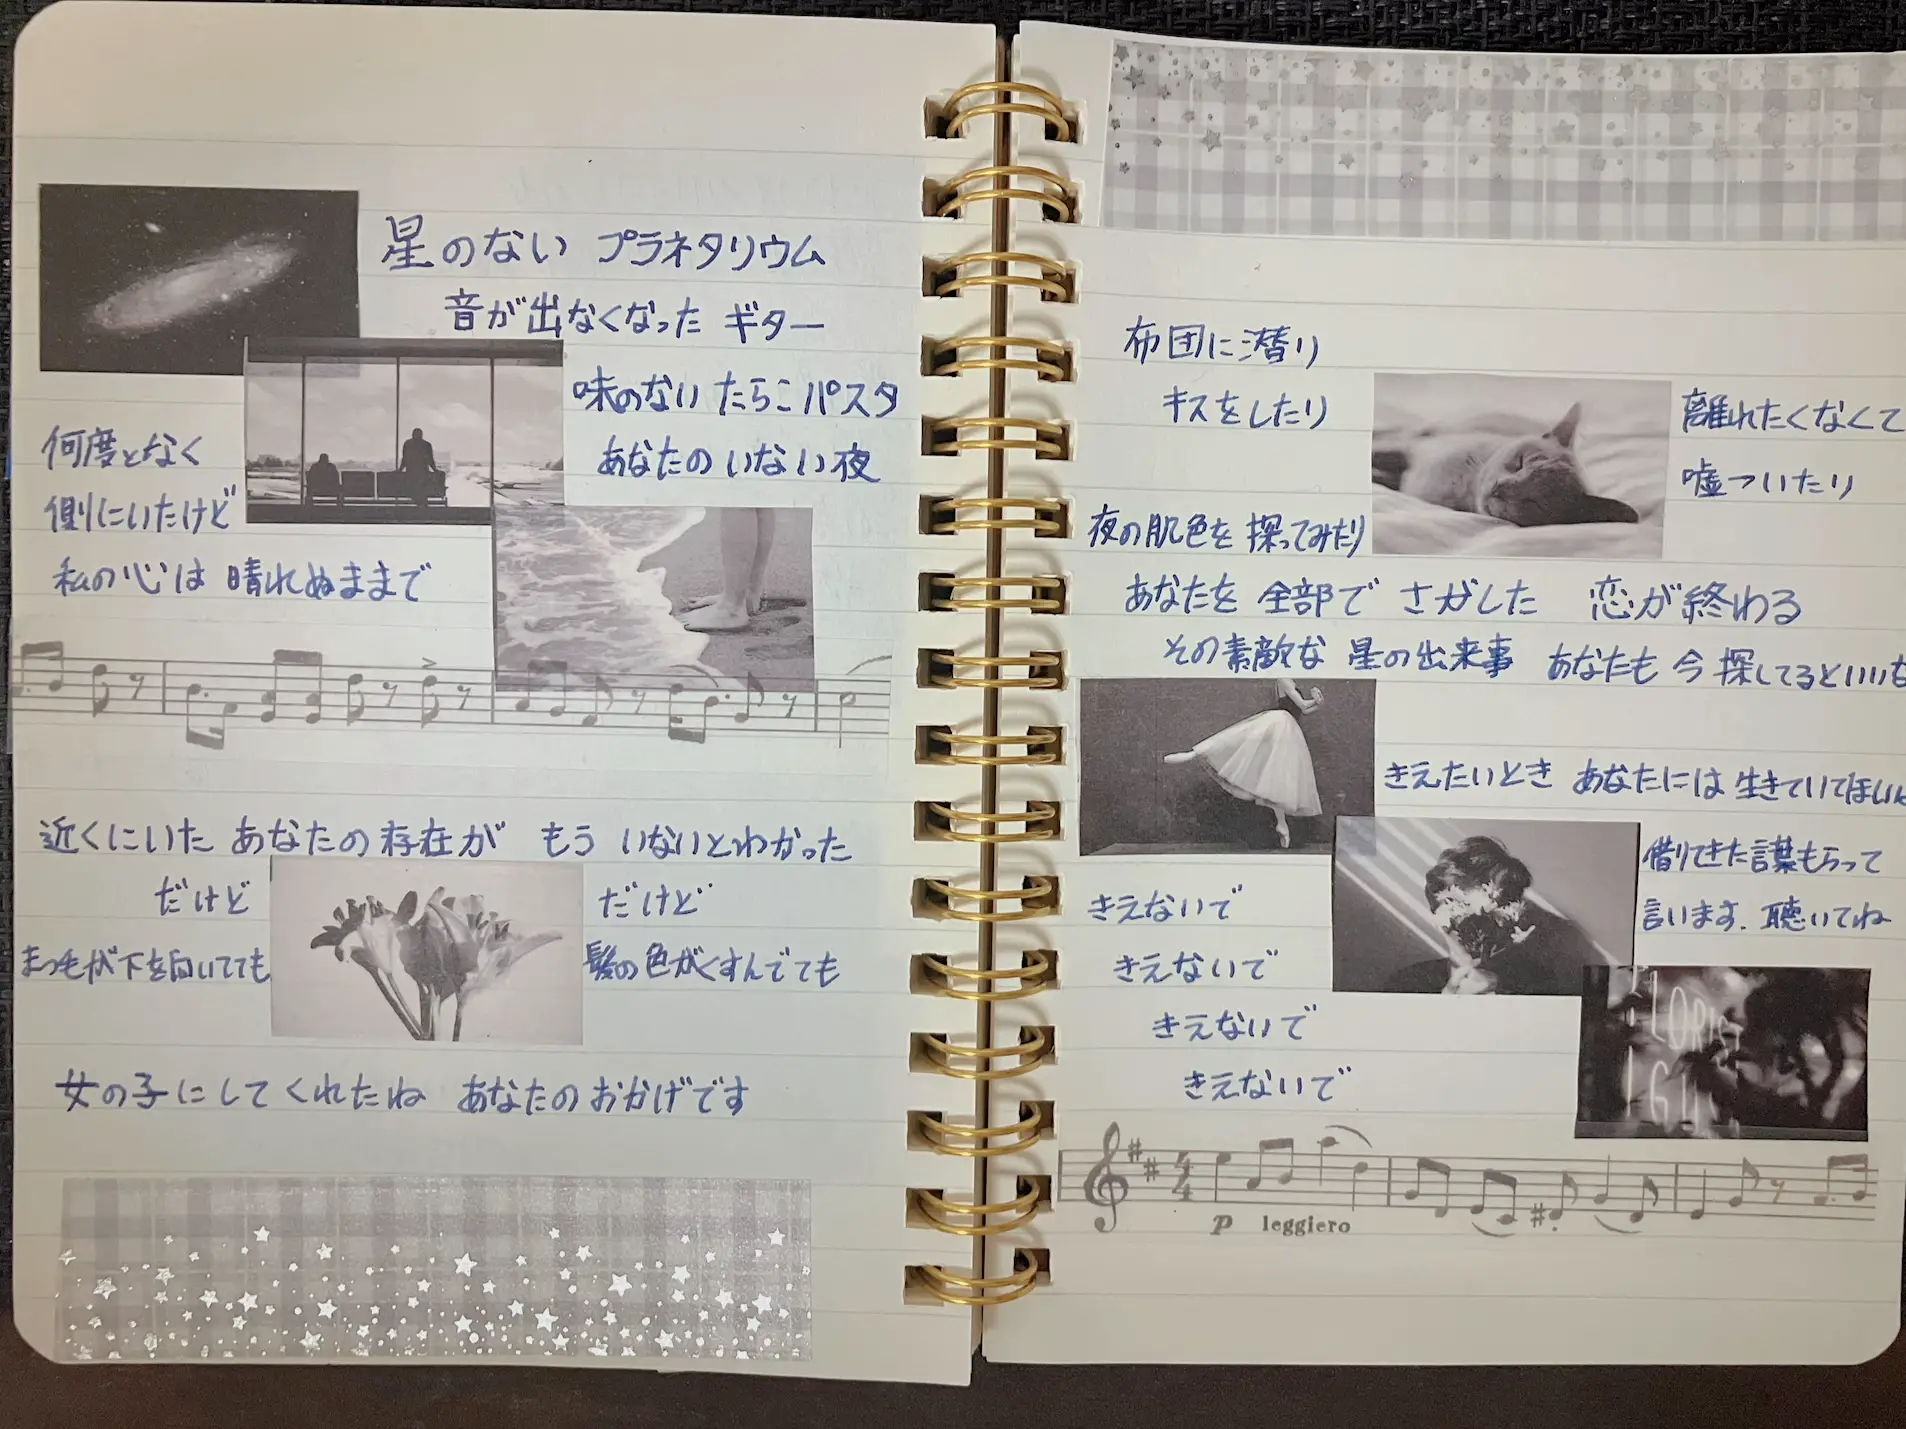 星のない プラネタリウム
音が出なくなった ギター
味のない たらこパスタ
あなたの いない夜
何度となく
側にいたけど
私の心は 晴れぬままで
近くにいた あなたの存在が もう いないとわかった
だけど だけど
まつ毛が下を向いてても 髪の色がくすんでても
女の子にしてくれたね あなたのおかげです
布団に潜り
キスをしたり
離れたくなくて
嘘ついたり
夜の肌色を 探ってみたり
あなたを 全部で さがした 恋が終わる
その素敵な 星の出来事 あなたも 今 探してるといいな
きえたいとき あなたには 生きていてほしい
借りてきた言葉もらって
言います. 聴いてね
きえないで
きえないで
きえないで
きえないで
p leggiero